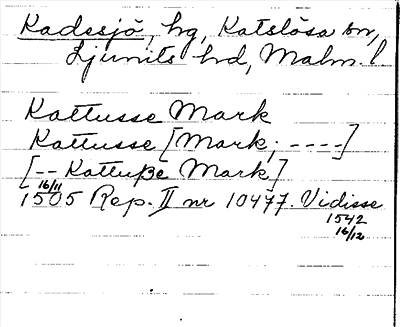 Kadesjö, hg, Katslösa sn,
Ljunits hd, Malm. l
Kattusse Mark
Kattusse [Mark; ----]
[-- Kattuße Mark]
16/11
1505 Rep. II nr 10477. Vidisse
1542
16/12